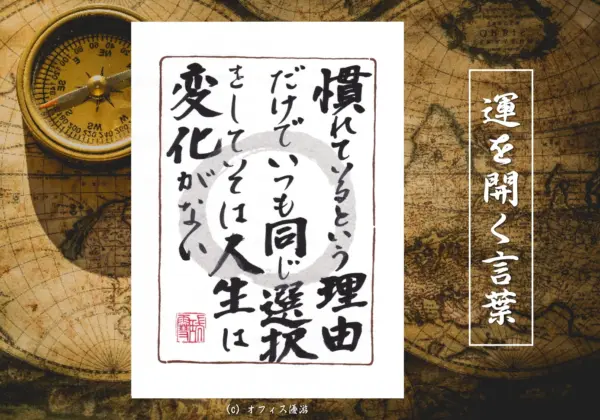 運を開く言葉
慣れているという理由
だけでいつも同じ選択
をしてては人生は
変化がない
(C) オフィス優游